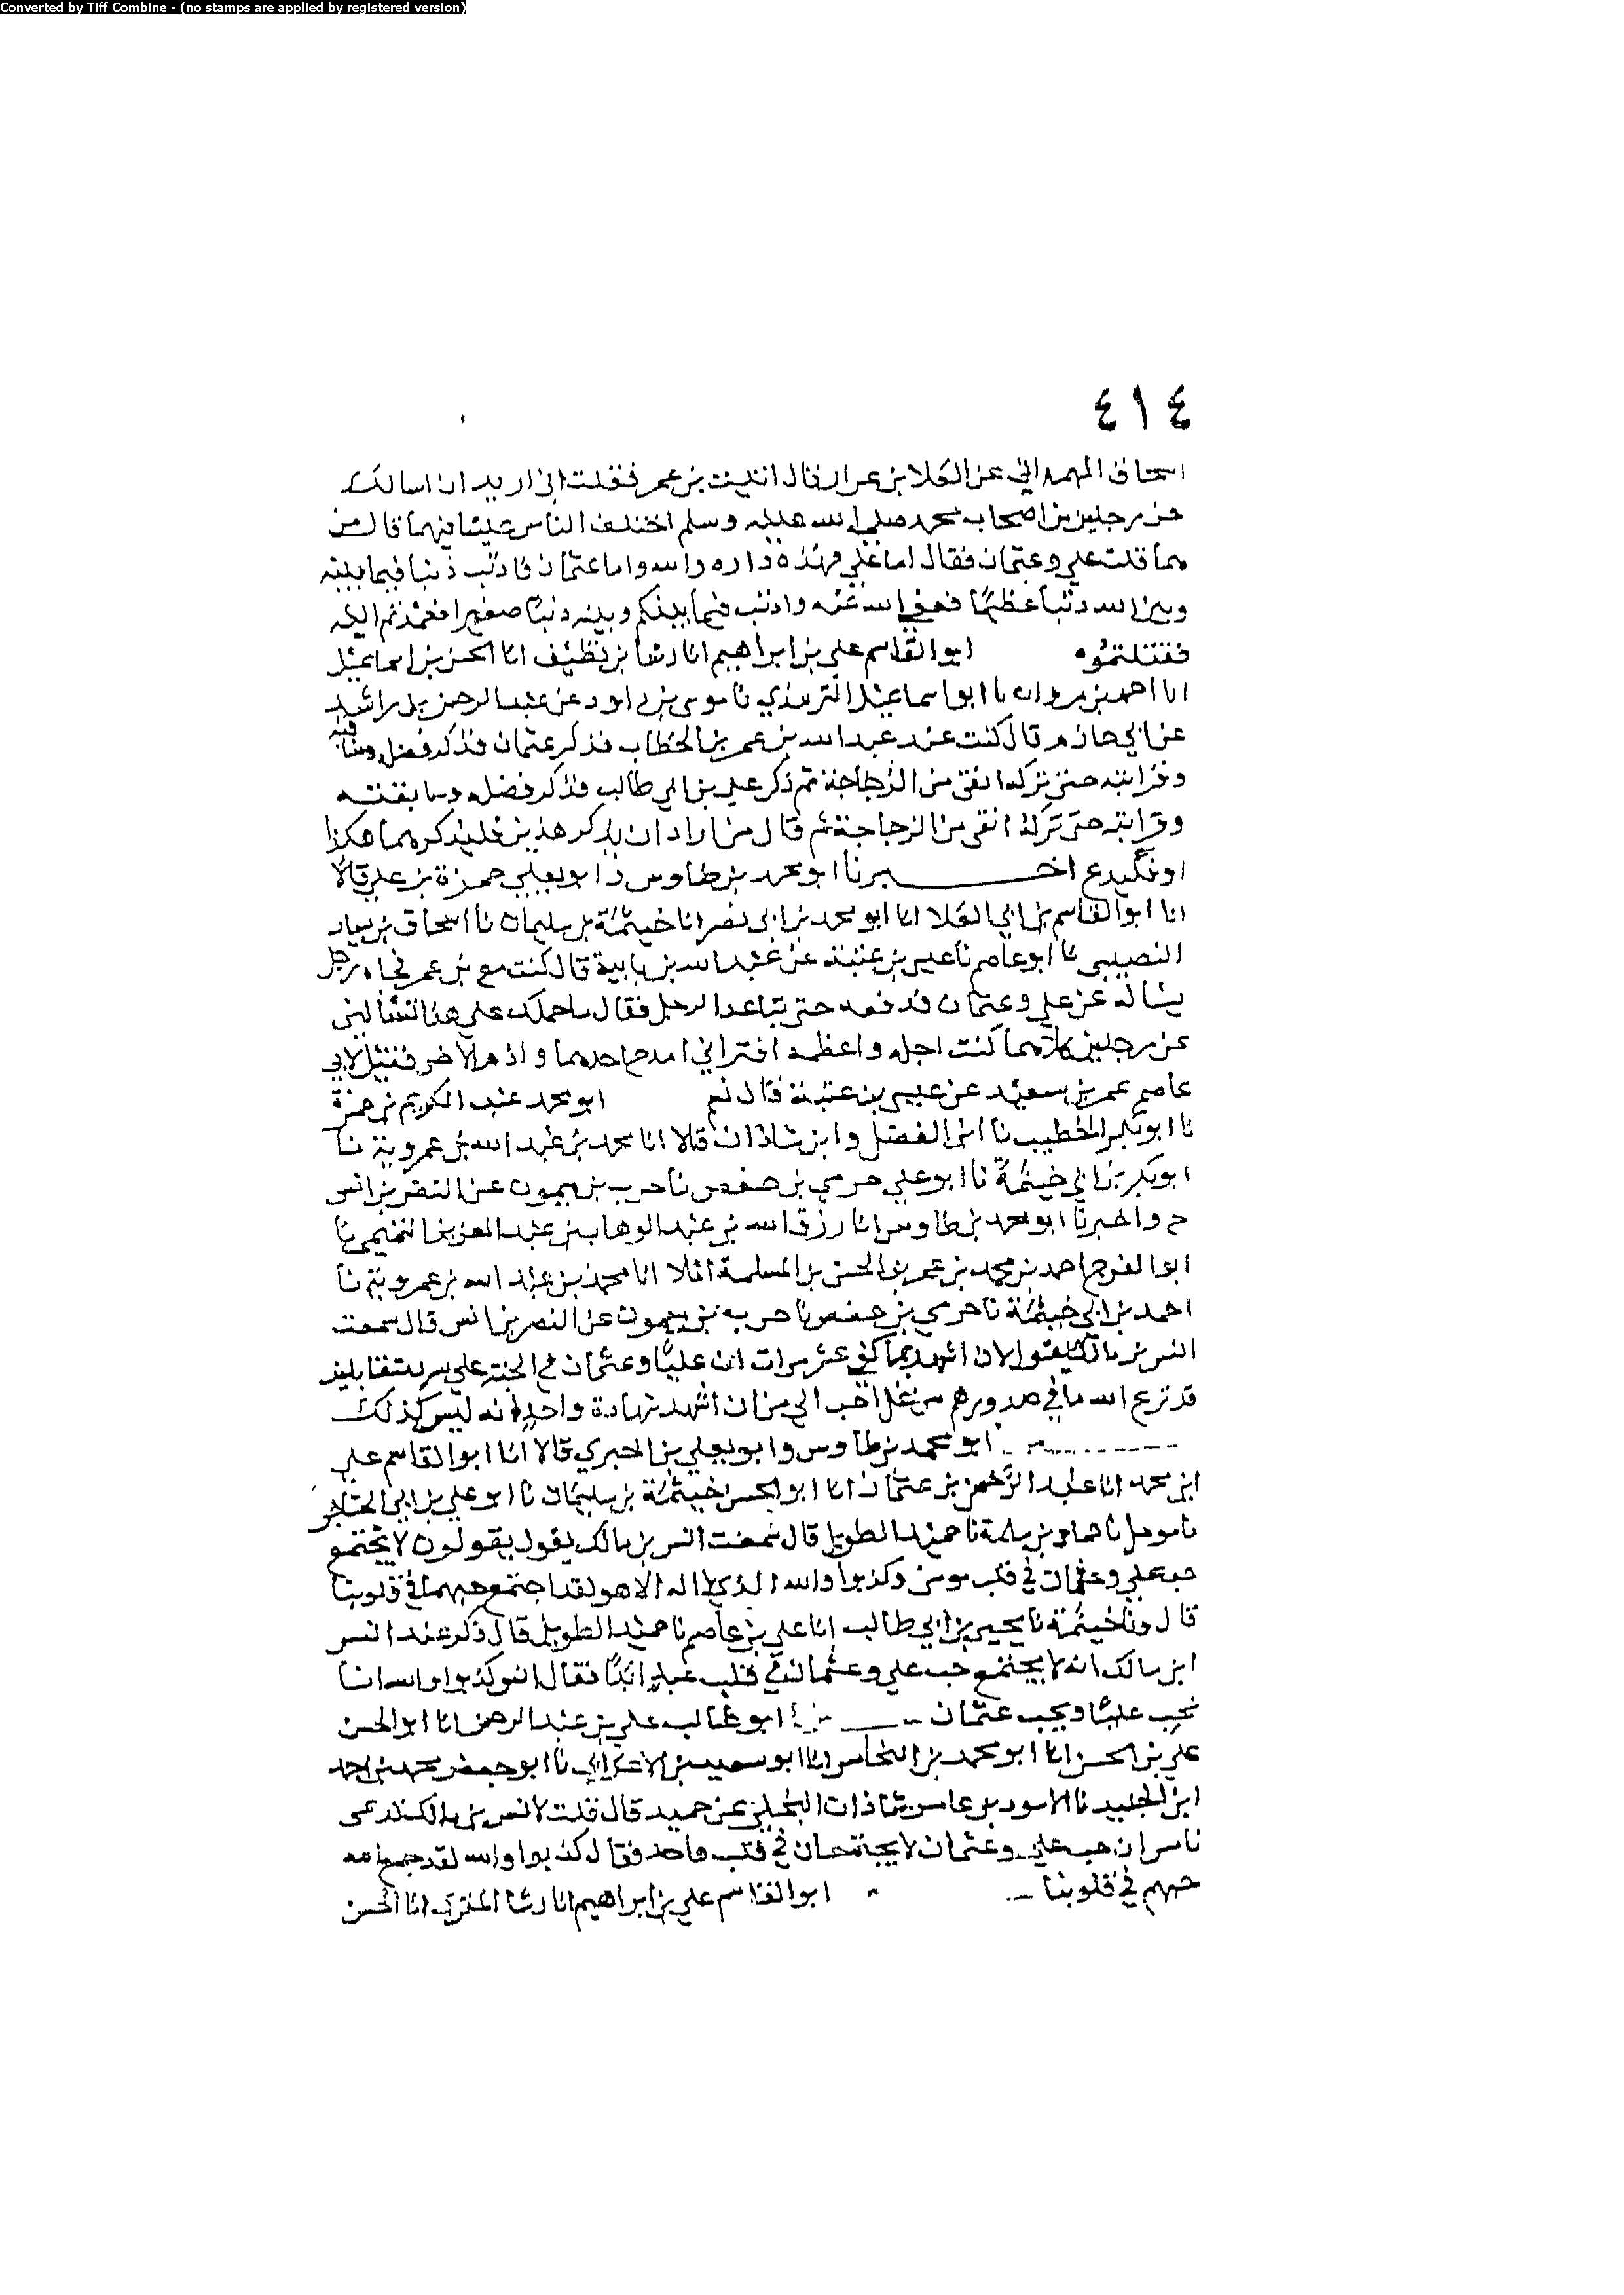 Converted by Tiff Combine - (no stamps are applied by registered version)
٤١٤
اسحاق الهمداني عن العلا بن عرار قال اتيت بن عمر فقلت اني اريد ان اسالك
عن رجلين من اصحاب محمد صلى الله عليه وسلم اختلف الناس علينا فيهما قال من
هما قلت علي وعثمان فقال اما علي فهذه داره واما عثمان فاذنب ذنبا فيما بينه
وبين الله ذنبا عظيما فعفى الله عنه واذنب فيما بينكم وبينه ذنبا صغيرا فعمدتم اليه
فقتلتموه ابو القاسم علي بن ابراهيم انا رشا بن نظيف انا الحسن بن اسماعيل
انا احمد بن مروان نا ابو اسماعيل الترمذي نا موسى بن داود عن عبد الرحمن بن راشد
عن ابي حازم قال كنت عند عبد الله بن عمر بن الخطاب فذكر عثمان فذكر فضله وسابقته
وقرابته حتى تركه انقى من الزجاجة ثم ذكر علي بن ابي طالب فذكر فضله وسابقته
وقرابته حتى تركه انقى من الزجاجة ثم قال من اراد ان يذكر هذين فليذكرهما هكذا
او فليدع اخبرنا ابو محمد بن طاوس وابو يعلي حمزة بن علي قالا
انا ابو القاسم بن ابي العلا انا ابو محمد بن ابي نصر انا خيثمة بن سليمان نا اسحاق بن سيار
النصيبي نا ابو عاصم نا عيسى بن عتبة عن عبد الله بن بابية قال كنت مع بن عمر فجاه رجل
يساله عن علي وعثمان فدفعه حتى تباعد الرجل فقال ما حملك على هذا تسالني
عن رجلين كلاهما كنت اجله واعظمه افتراني امدح احدهما واذم الاخر فقيل لابي
عاصم عمر بن سعيد عن عيسى بن عتبة قال نعم ابو محمد عبد الكريم بن حمزة
نا ابو بكر الخطيب نا ابن الفضل وابن شاذان قالا انا محمد بن عبد الله بن عمروية نا
ابو بكر بن ابي خيثمة نا ابو علي حرمي بن حفص نا حرب بن ميمون عن النضر بن انس
ح واخبرنا ابو محمد بن طاوس انا رزق الله بن عبد الوهاب بن عبد العزيز التميمي نا
ابو الفرج احمد بن محمد بن عمر بن الحسن بن المسلمة املا انا محمد بن عبد الله بن عمروية نا
احمد بن ابي خيثمة نا حرمي بن حفص نا حرب بن ميمون عن النضر بن انس قال سمعت
انس بن مالك يقول لان اشهد عشر مرات ان عليا وعثمان في الجنة على سرر متقابلين
قد نزع الله ما في صدورهم من غل احب الي من ان اشهد شهادة واحدة انه ليس كذلك
ابو محمد بن طاوس وابو يعلي بن الحبري قالا انا ابو القاسم علي
ابن محمد انا عبد الرحمن بن عثمان انا ابو الحسن خيثمة بن سليمان نا ابو علي بن ابي الحناجر
نا مومل نا حماد بن سلمة نا حميد الطويل قال سمعت انس بن مالك يقول يقولون لا يجتمع
حب علي وعثمان في قلب مومن وكذبوا والله الذي لا اله الا هو لقد اجتمع حبهما في قلوبنا
قال ونا خيثمة نا يحيى بن ابي طالب انا علي بن عاصم نا حميد الطويل قال ذكر عند انس
ابن مالك انه لا يجتمع حب علي وعثمان في قلب عبد ابدا فقال انس كذبوا والله انا
نحب عليا ونحب عثمان ابو طالب علي بن عبد الرحمن انا ابو الحسن
علي بن الحسن انا ابو محمد بن النحاس انا ابو سعيد بن الاعرابي نا ابو جعفر محمد بن احمد
ابن الجنيد نا الاسود بن عامر شاذان عن حميد قال قلت لانس بن مالك
ناس ان حب علي وعثمان لا يجتمعان في قلب واحد فقال كذبوا والله لقد جمع الله
حبهم في قلوبنا ابو القاسم علي بن ابراهيم انا رشا المقري انا الحسن